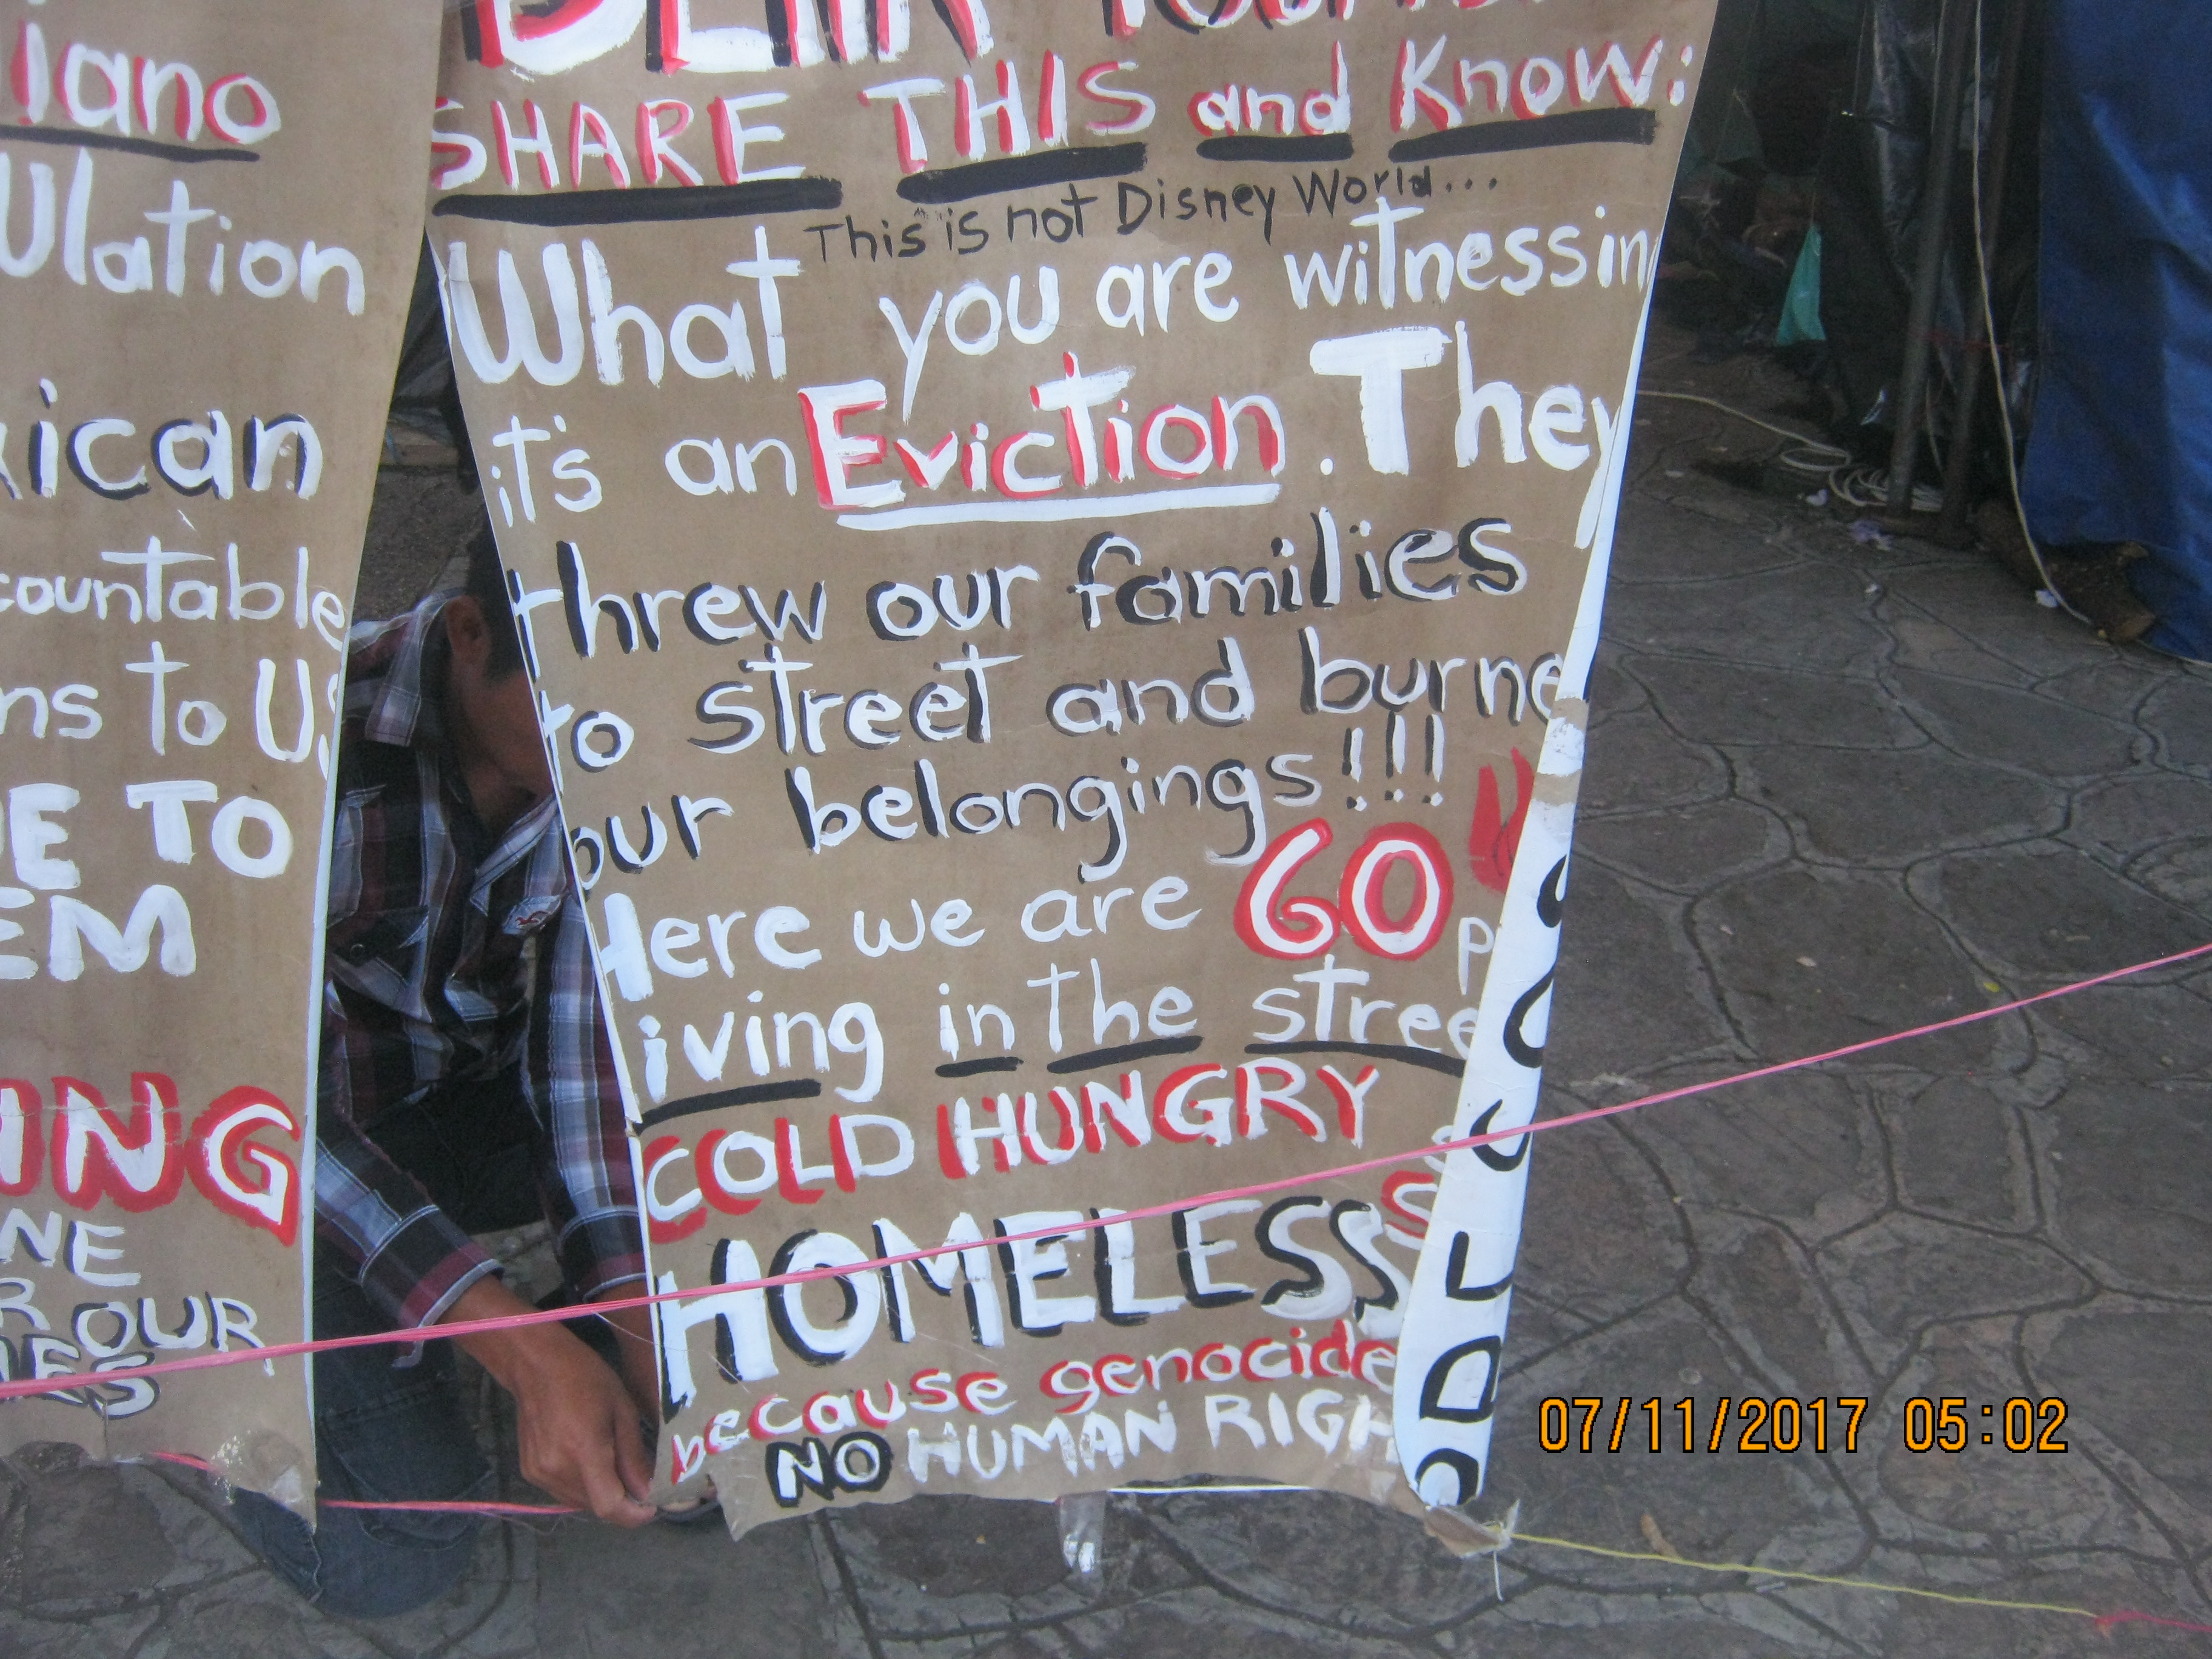 iano
ulation
ican
countable
ns to Us
E TO
EM
ING
NE
R OUR
IES
SHARE THIS and Know:
This is not Disney World...
What you are witnessin
it's an Eviction. They
threw our families
to street and burne
our belongings!!!
Here we are 60 p
living in the stree
COLD HUNGRY
HOMELESS
because genocide
NO HUMAN RIGH
07/11/2017 05:02